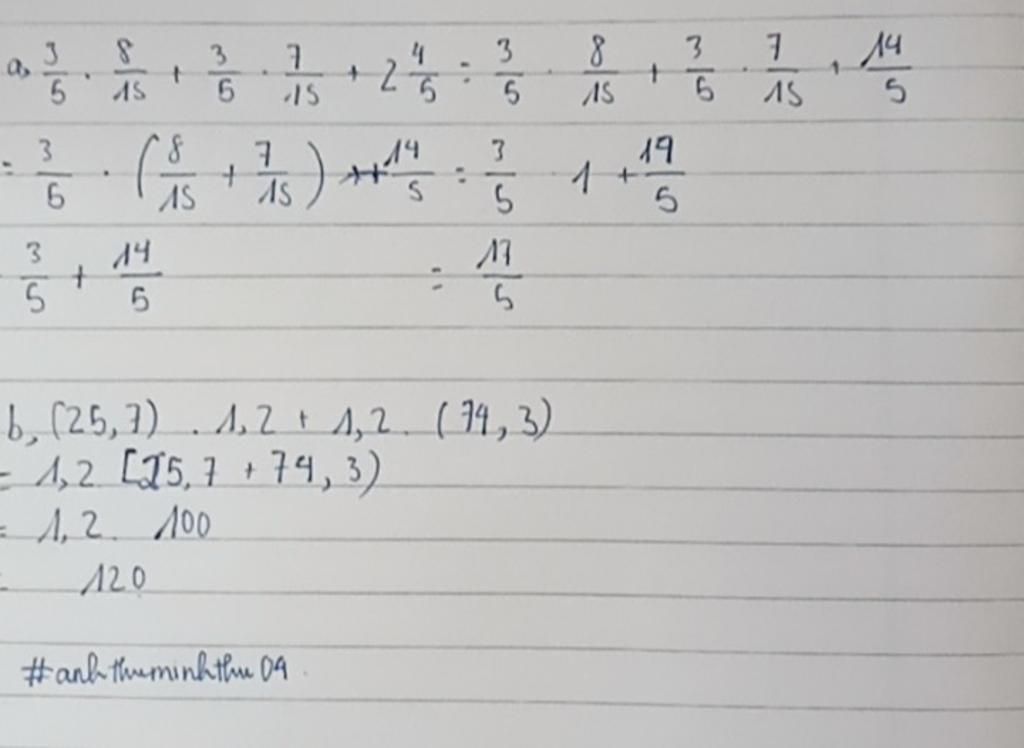 a, 3/5 . 8/15 + 3/5 . 7/15 + 2 4/5 = 3/5 . 8/15 + 3/5 . 7/15 + 14/5
= 3/5 . (8/15 + 7/15) + 14/5 = 3/5 . 1 + 14/5
3/5 + 14/5 = 17/5
b, (25,7) . 1,2 + 1,2 . (74,3)
= 1,2 [25,7 + 74,3)
= 1,2 . 100
= 120
#anhthuminhthu09.